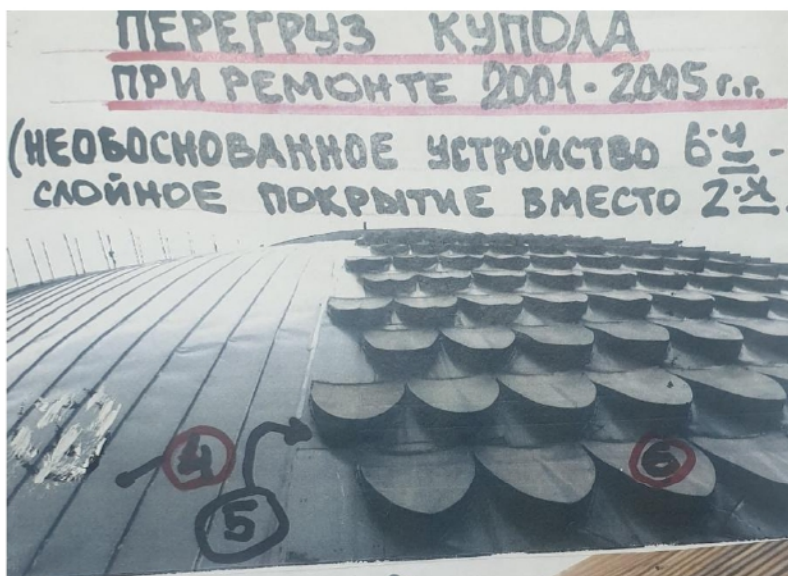 ПЕРЕГРУЗ КУПОЛА
ПРИ РЕМОНТЕ 2001-2005 г.г.
(НЕОБОСНОВАННОЕ УСТРОЙСТВО 6-И-
СЛОЙНОЕ ПОКРЫТИЕ ВМЕСТО 2-Х
4
5
6